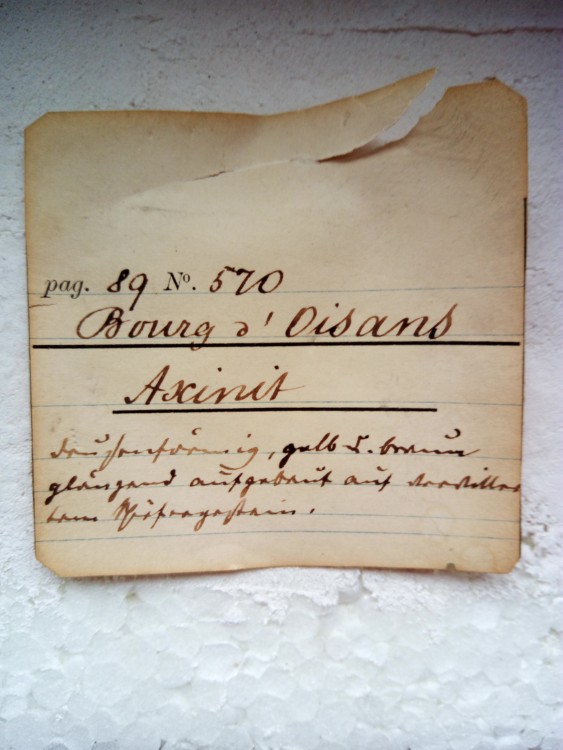 pag. 89 No. 570
Bourg d' Oisans
Axinit
drusenförmig, gelb u. braun
glänzend aufgebaut auf verwitter
tem Schiefergestein.